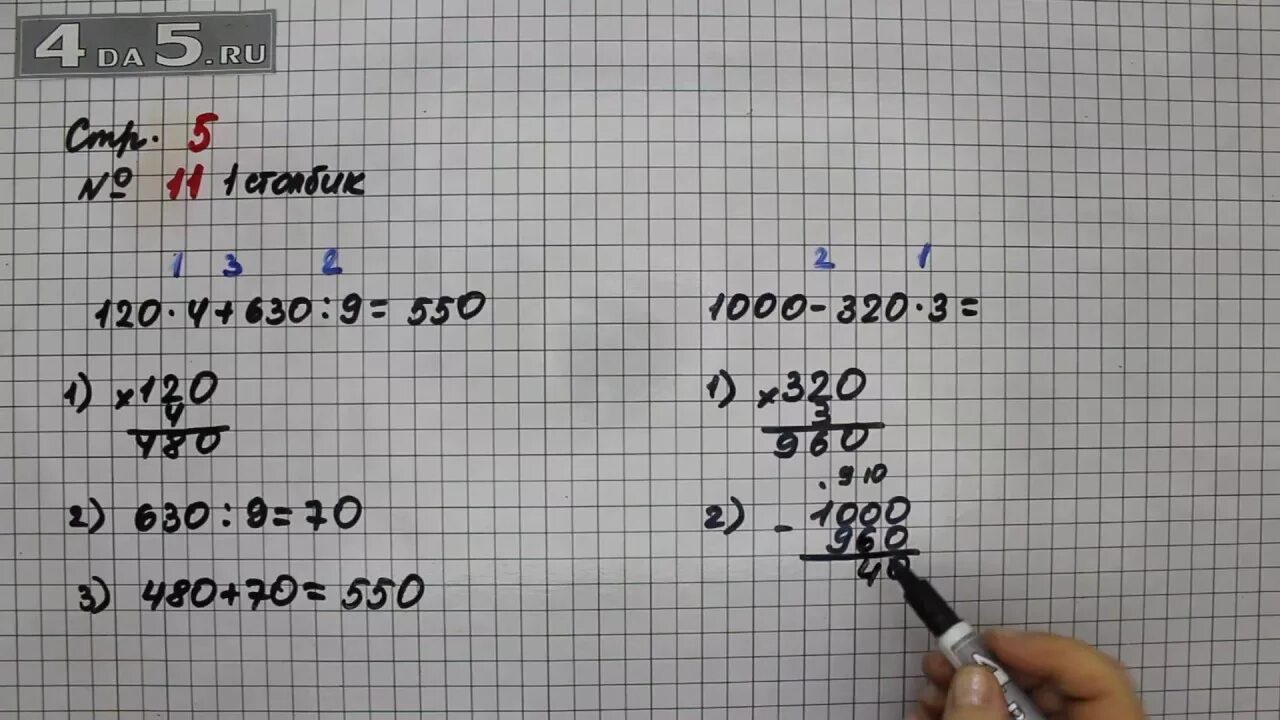 4DA5.RU
Стр. 5
№ 11 1 столбик
1 3 2
120·4+630:9=550
1) ×120
4
480
2) 630:9=70
3) 480+70=550
2 1
1000-320·3=
1) ×320
3
960
. 9 10
2) -1000
960
40